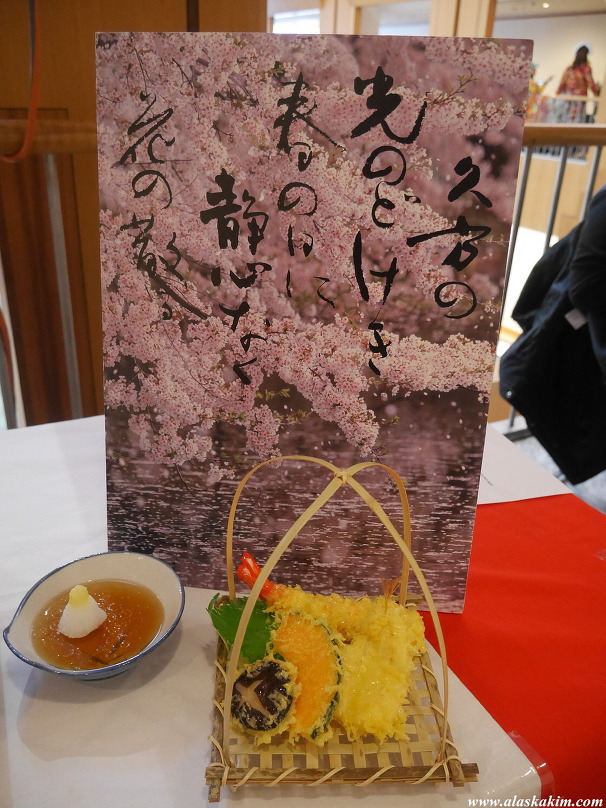 久方の
光のどけき
春の日に
静心なく
花の散る
www.alaskakim.com